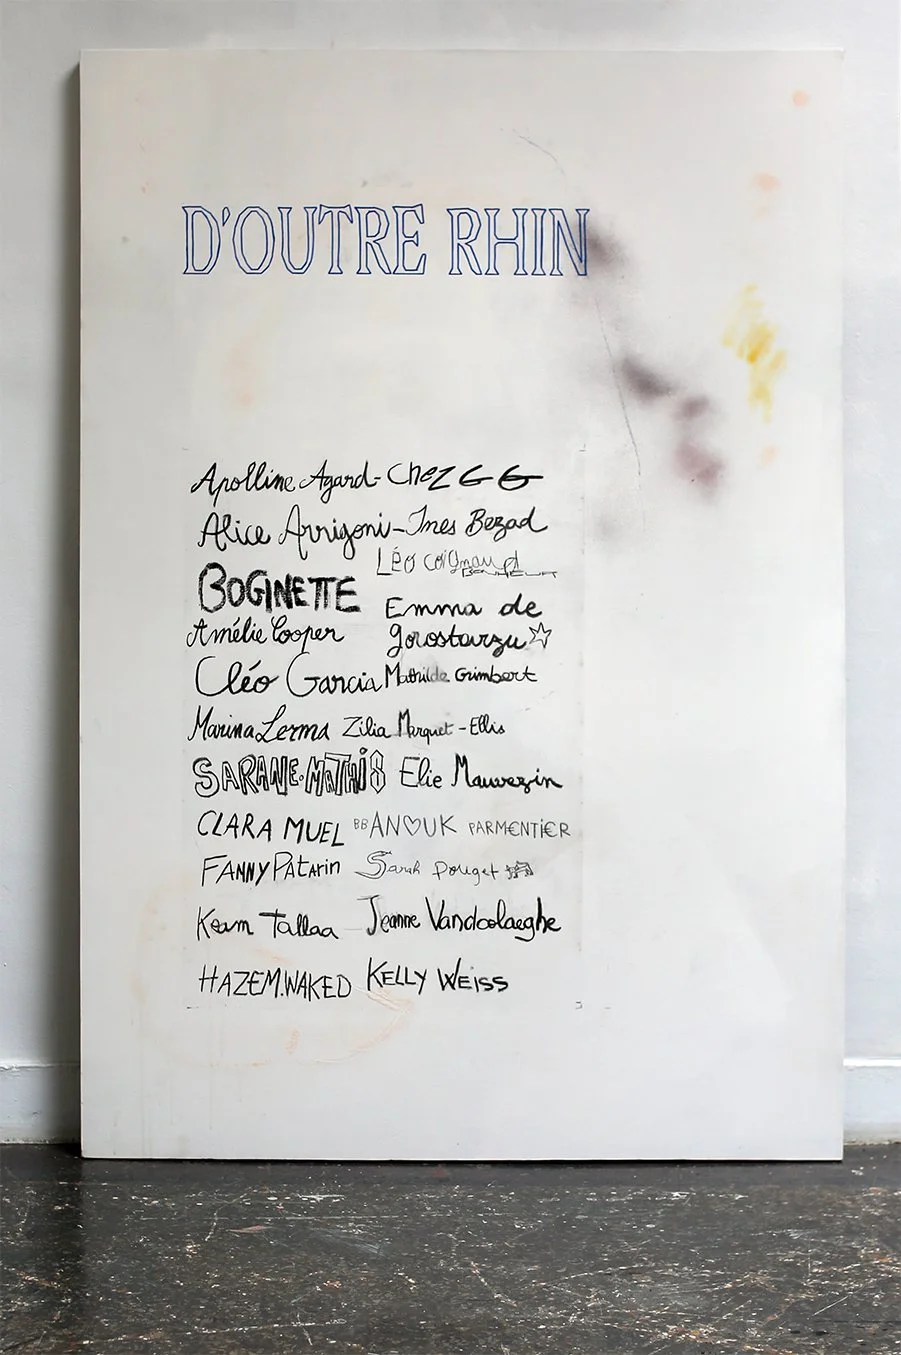 D'OUTRE RHIN
Apolline Agard - Chez GG
Alice Arrigoni - Ines Bezad
Léo Coignaud
BOGINETTE
Emma de
Gorostarzu
Amélie Cooper
Cléo Garcia Mathilde Grimbert
Marina Lerma Zilia Marquet-Ellis
SARANE.MATHIS Elie Mauvezin
CLARA MUEL BB ANOUK PARMENTIER
FANNY PATARIN Sarah Pouget
Keam Tallaa Jeanne Vandoolaeghe
HAZEM.WAKED KELLY WEISS